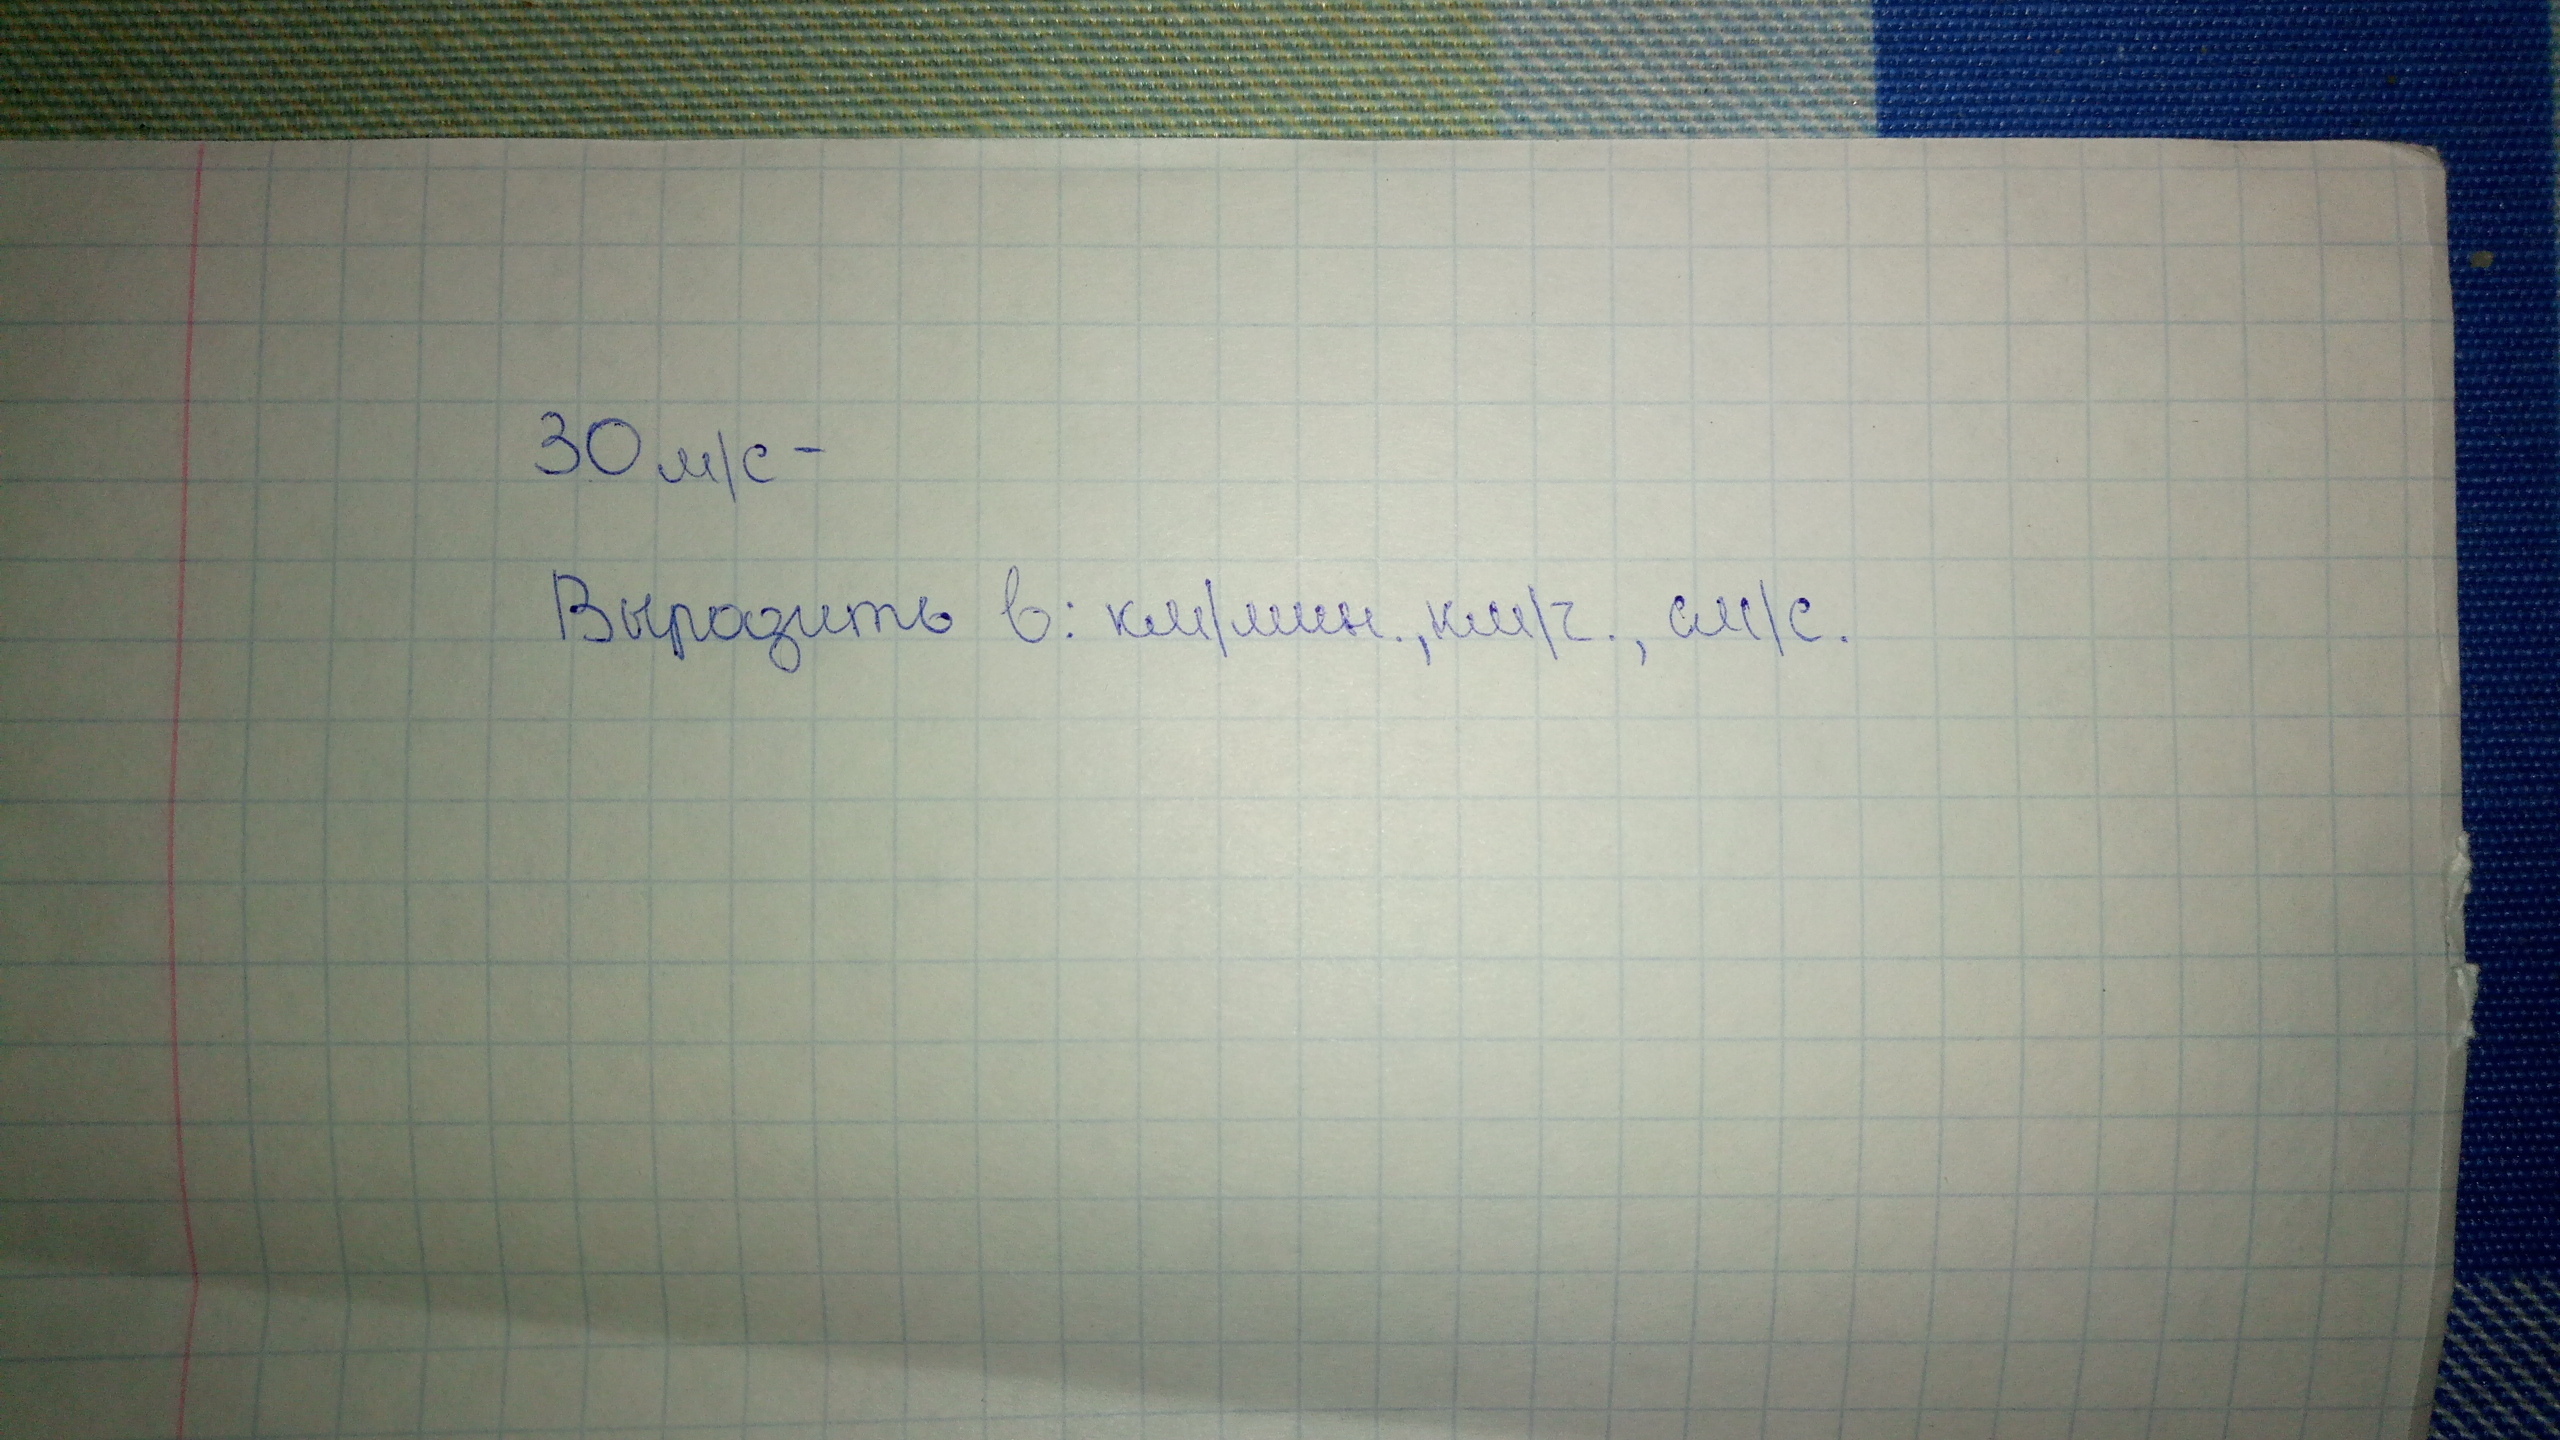 30 м/с -
Выразить в: км/мин., км/ч., см/с.